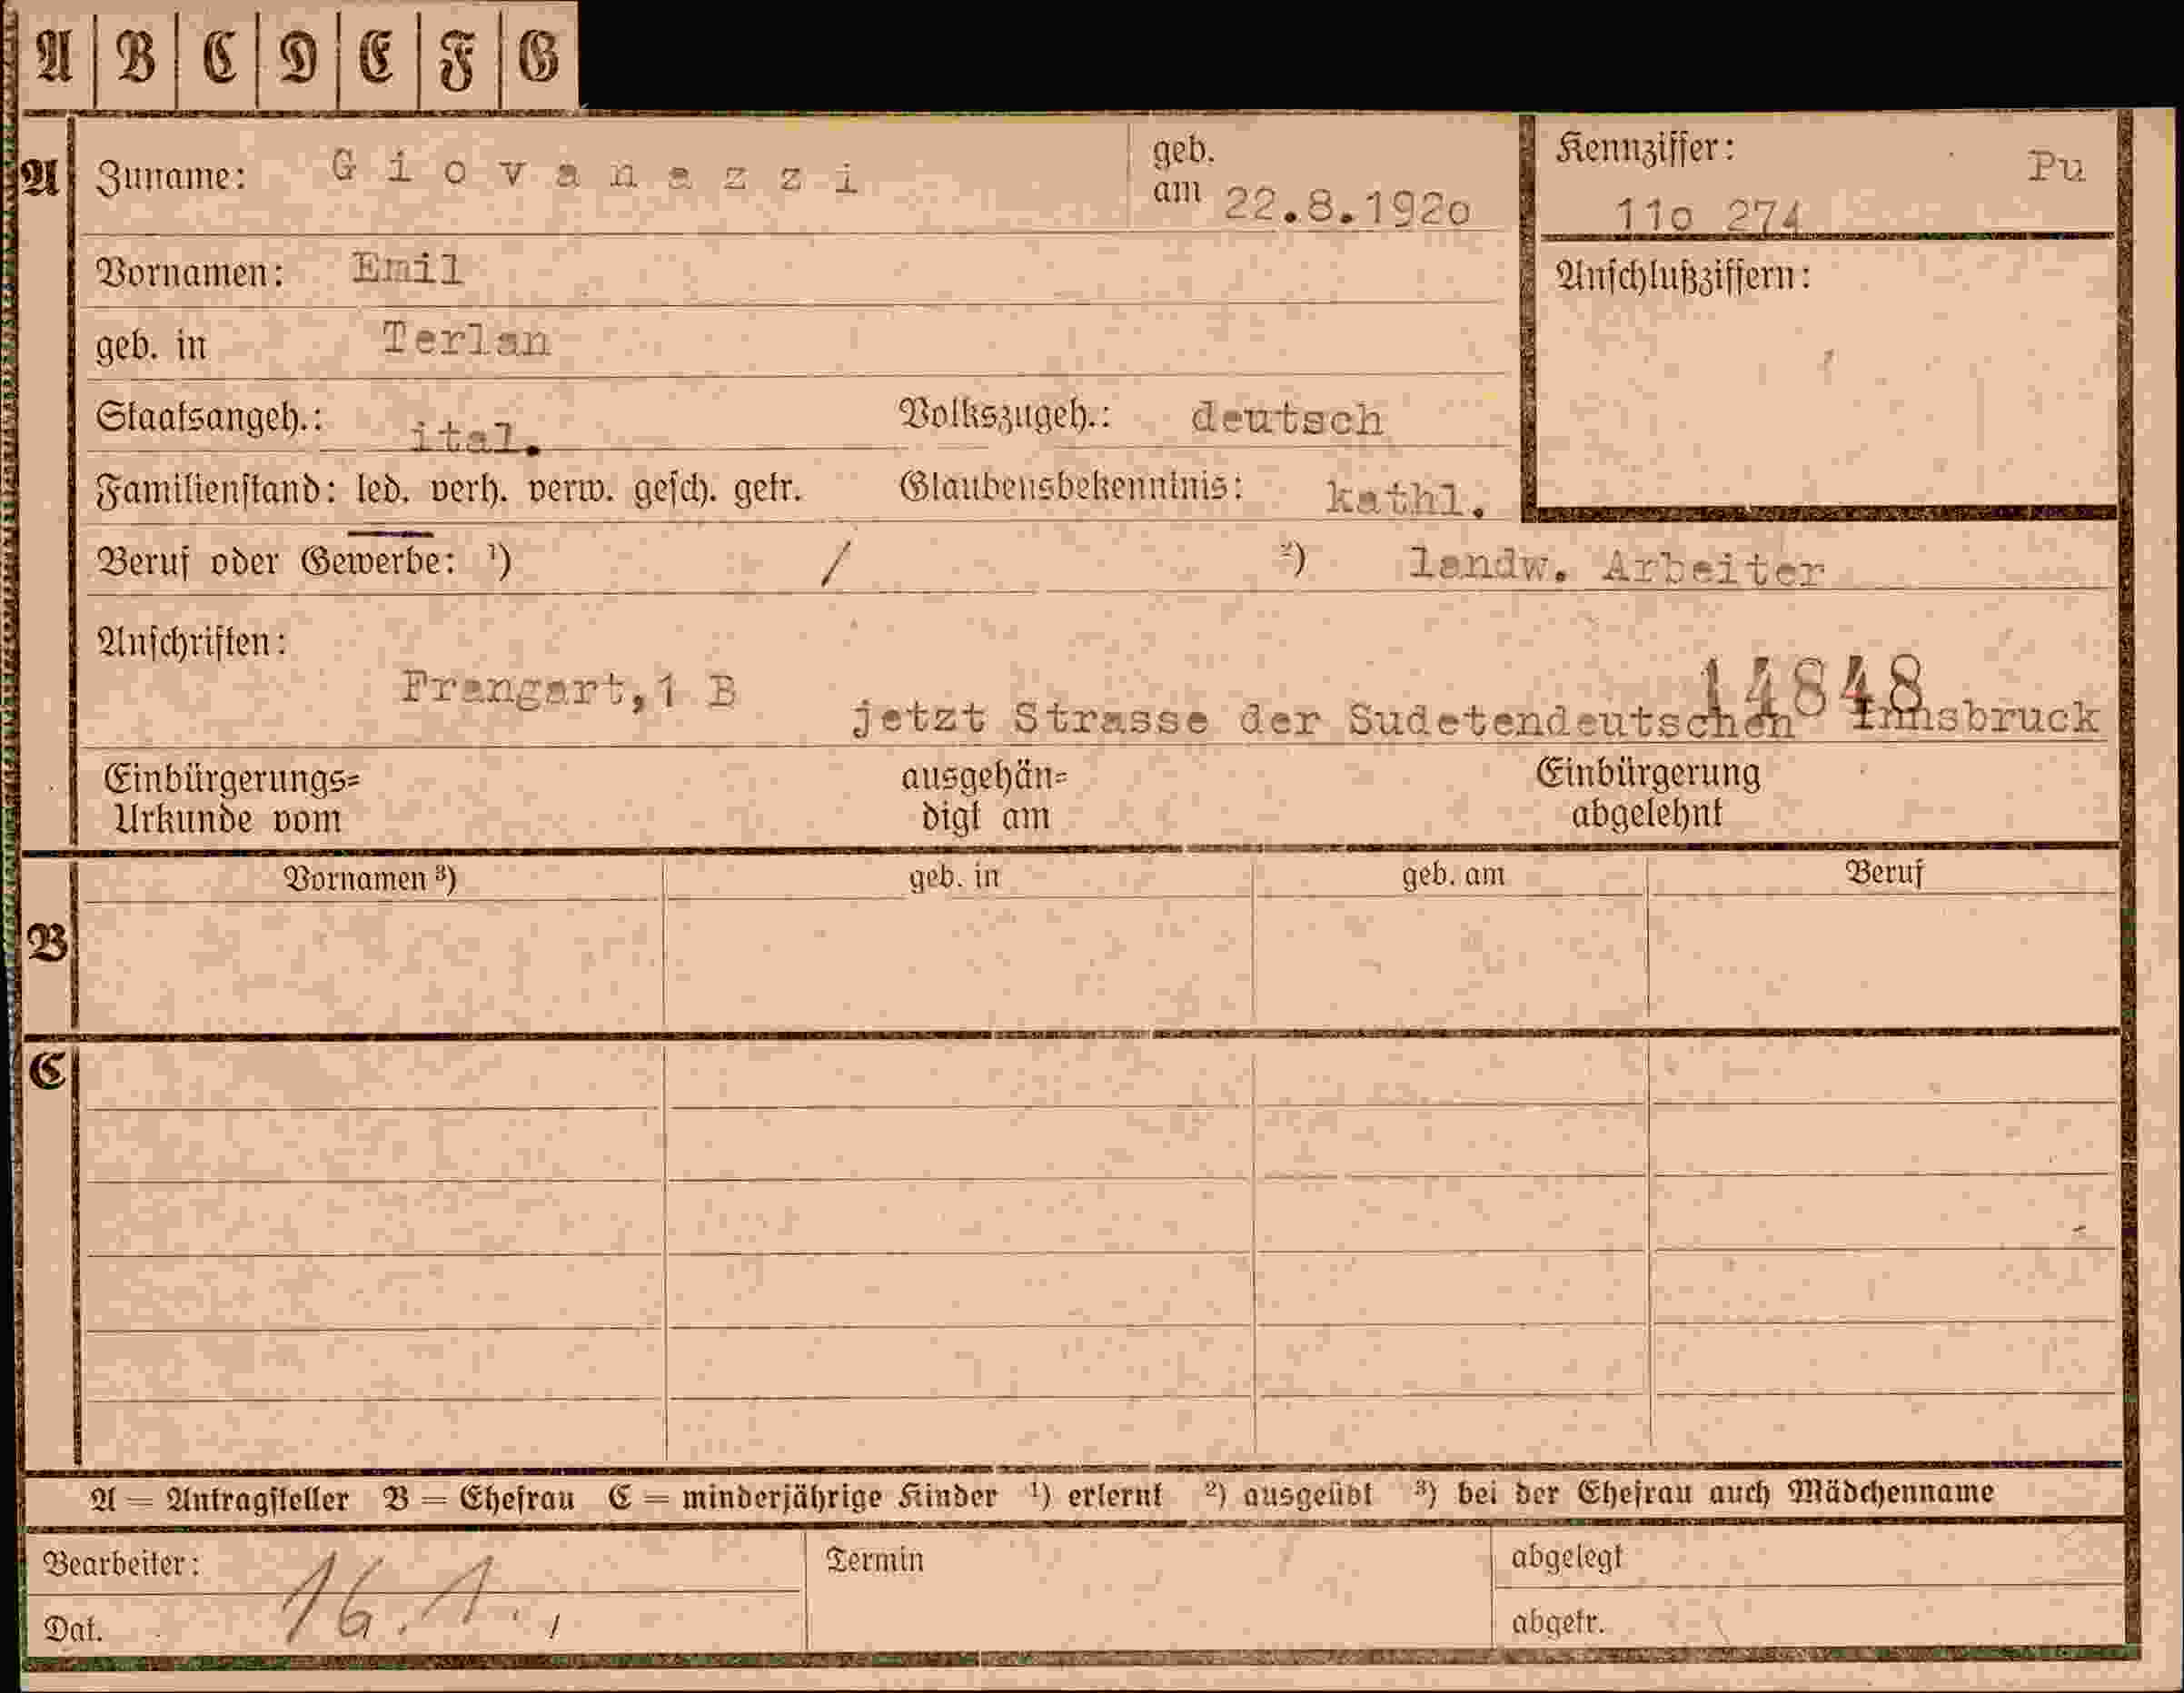 A B C D E F G
A Zuname: Giovanazzi geb. am 22.8.192o Kennziffer: Pu 11o 274
Vornamen: Emil Anschlußziffern:
geb. in Terlan
Staatsangeh.: ital. Volkszugeh.: deutsch
Familienstand: led. verh. verw. gesch. getr. Glaubensbekenntnis: kathl.
Beruf oder Gewerbe: ¹) / ²) landw. Arbeiter
Anschriften:
14848
Frangart,1 B jetzt Strasse der Sudetendeutschen Innsbruck
Einbürgerungs= ausgehän= Einbürgerung
Urkunde vom digt am abgelehnt
Vornamen ³) geb. in geb. am Beruf
B
C
A = Antragsteller B = Ehefrau C = minderjährige Kinder ¹) erlernt ²) ausgeübt ³) bei der Ehefrau auch Mädchenname
Bearbeiter: Termin abgelegt
Dat. 16.1. abgetr.